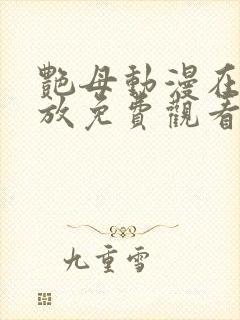 艷母動漫在
放免費觀看
九重雪